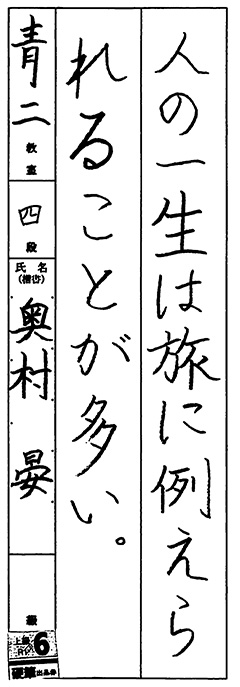 人の一生は旅に例えら
れることが多い。
青二教室
四段
氏名
奥村 晏
級
6
硬筆出品券